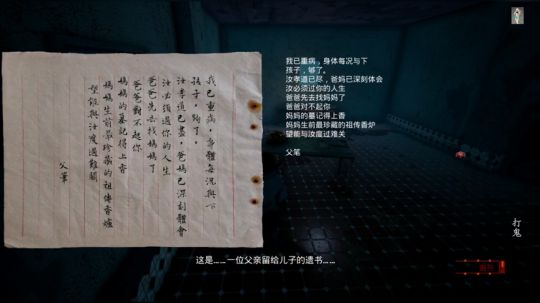 我已重病，身體每況與下
孩子，夠了。
汝孝道已盡，爸媽已深刻體會
汝必須過你的人生
爸爸先去找媽媽了
爸爸對不起你
媽媽的墓記得上香
媽媽生前最珍藏的祖傳香爐
望能與汝度過難關
父筆
我已重病，身体每况与下
孩子，够了。
汝孝道已尽，爸妈已深刻体会
汝必须过你的人生
爸爸先去找妈妈了
爸爸对不起你
妈妈的墓记得上香
妈妈生前最珍藏的祖传香炉
望能与汝度过难关
父笔
打鬼
这是……一位父亲留给儿子的遗书……